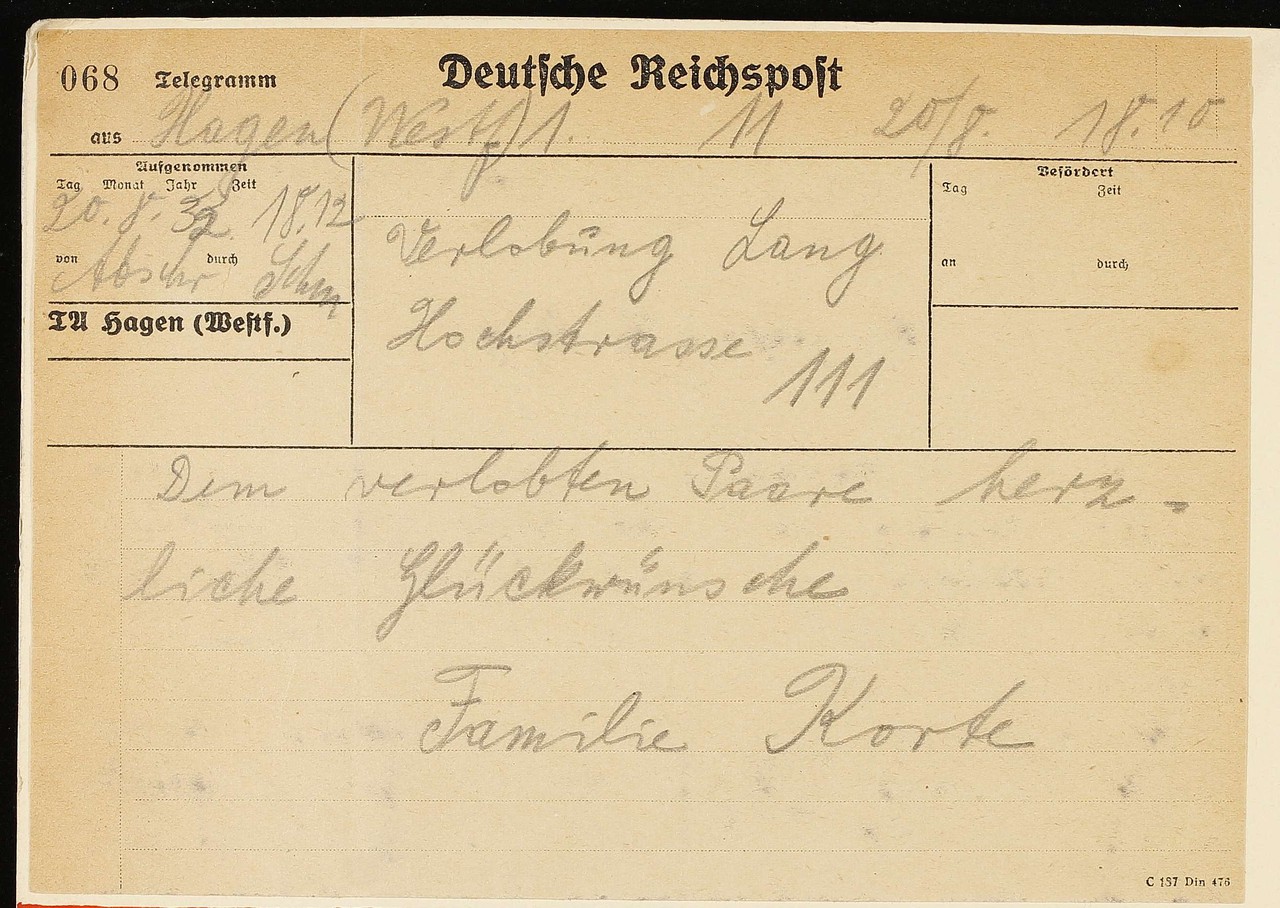 068 Telegramm Deutsche Reichspost
aus Hagen (Westf) 1. 11 20/8. 18.10
Aufgenommen
Tag Monat Jahr Zeit
20. 8. 32. 18.12
von durch Schm
TA Hagen (Westf.)
Verlobung Lang
Hochstrasse
111
Befördert
Tag Zeit
an durch
Dem verlobten Paare herz-
liche Glückwünsche
Familie Korte
C 187 Din 476